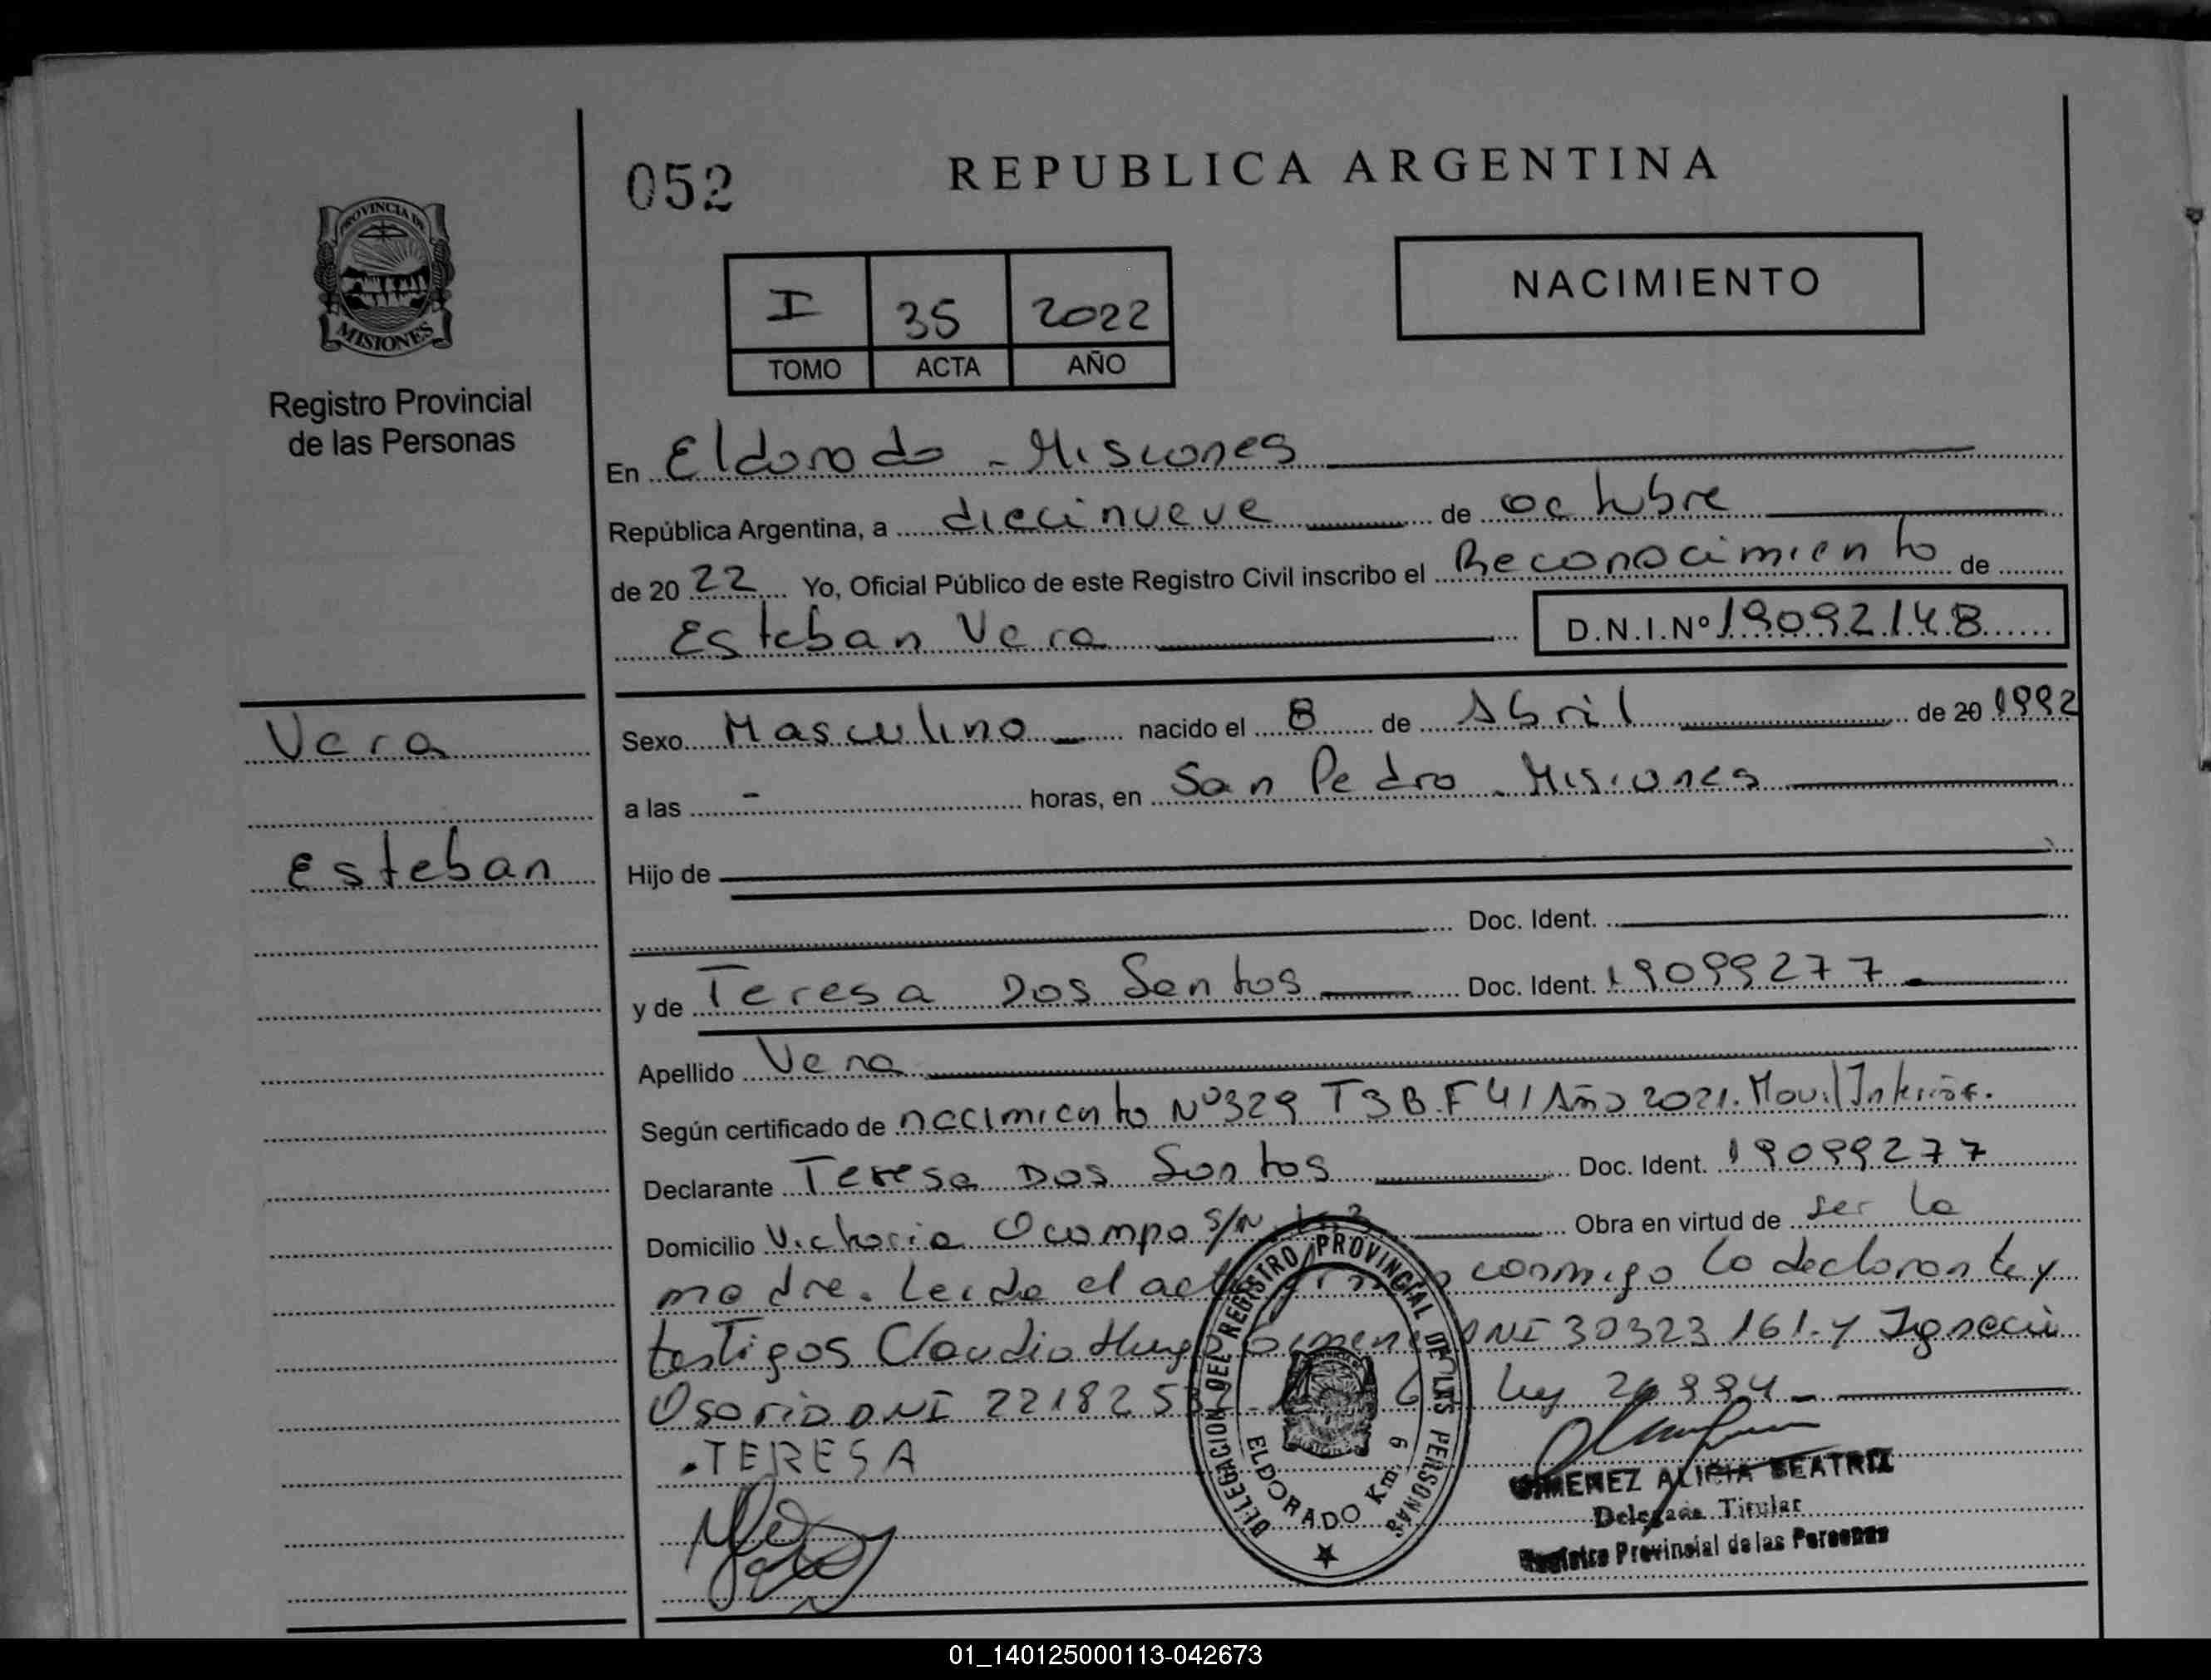 052
REPUBLICA ARGENTINA
PROVINCIA DE
MISIONES
Registro Provincial
de las Personas
I 35 2022
TOMO ACTA AÑO
NACIMIENTO
En Eldorado - Misiones
República Argentina, a diecinueve de octubre
de 20 22 Yo, Oficial Público de este Registro Civil inscribo el Reconocimiento de
Esteban Vera D.N.I.Nº 19092148
Vera
Esteban
Sexo Masculino nacido el 8 de Abril de 20 1992
a las - horas, en San Pedro - Misiones
Hijo de
Doc. Ident.
y de Teresa Dos Santos Doc. Ident. 19099277
Apellido Vera
Según certificado de nacimiento Nº 329 T3B F 41 Año 2021. Movil Interior.
Declarante Teresa Dos Santos Doc. Ident. 19099277
Domicilio Victoria Ocampo S/N Obra en virtud de ser la
madre. Leida el conmigo la declarante y
testigos Claudio Hugo DNI 30323161. y Ignacio
Osorio DNI 221825 Ley 26994
.TERESA
DELEGACION DEL REGISTRO PROVINCIAL DE LAS PERSONAS
ELDORADO Km. 9
MISIONES
GIMENEZ ALICIA BEATRIZ
Delegada Titular
Registro Provincial de las Personas
01_140125000113-042673